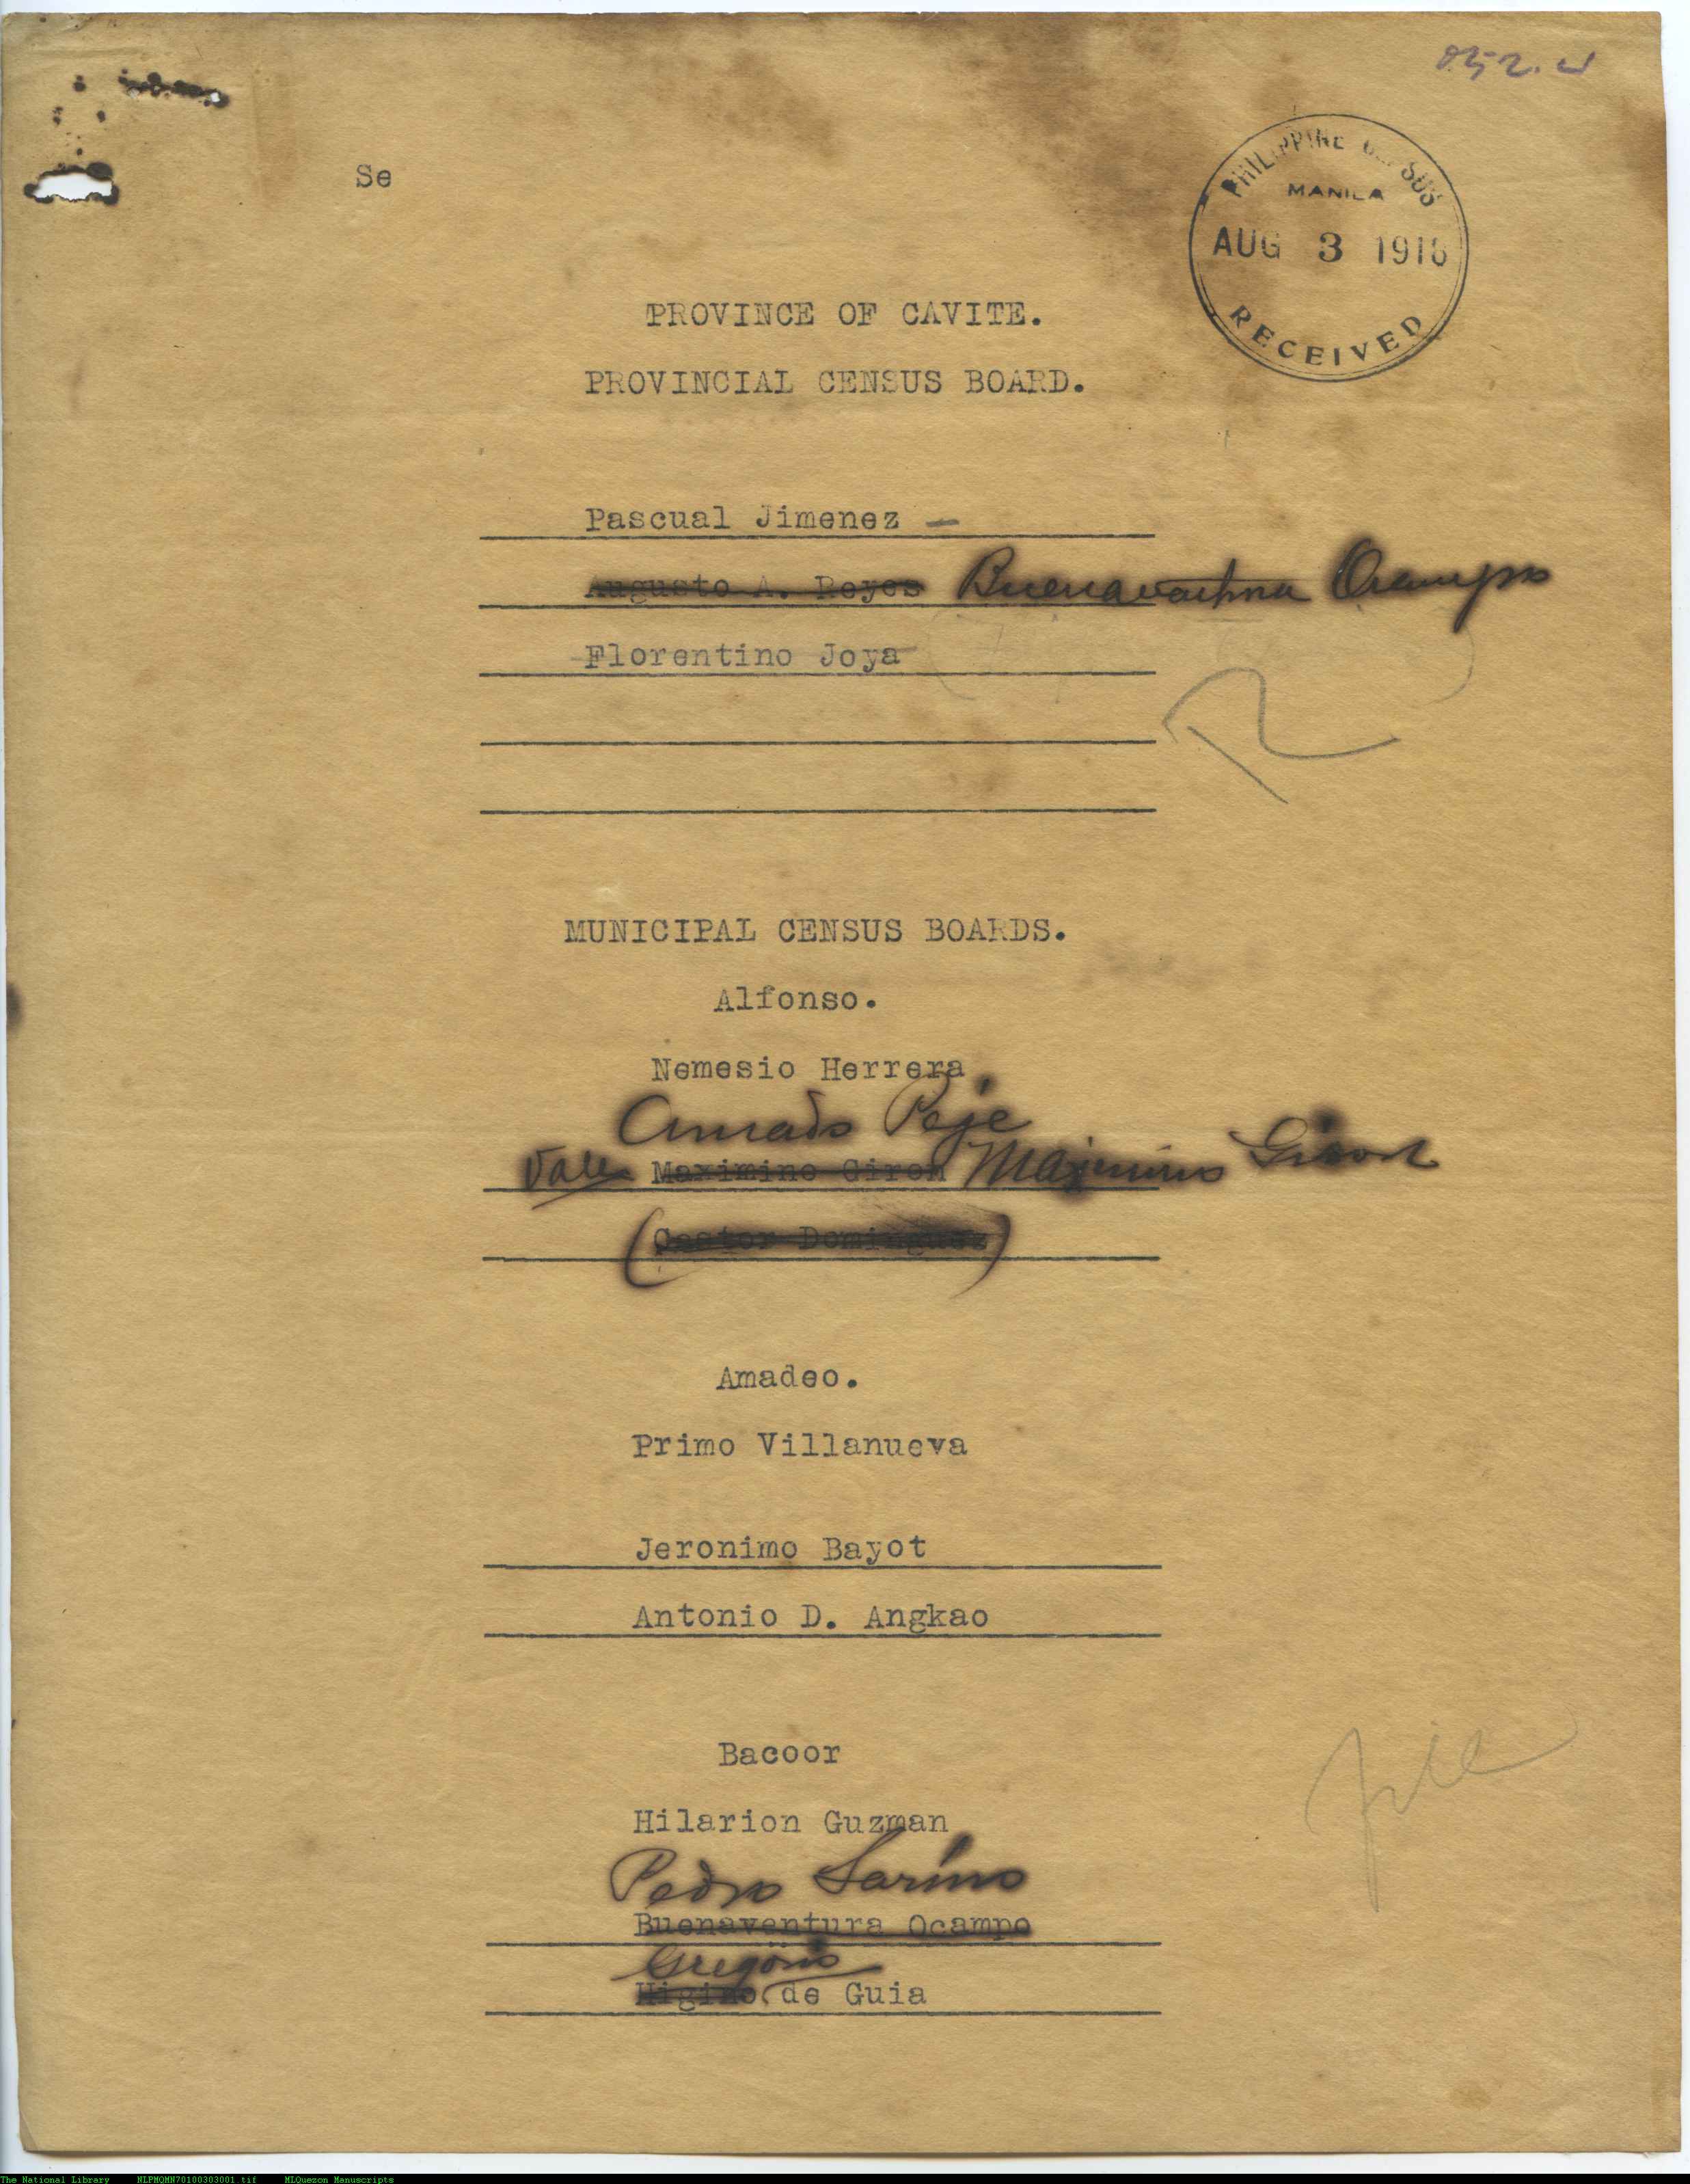 Se
PHILIPPINE CENSUS
MANILA
AUG 3 1918
RECEIVED
PROVINCE OF CAVITE.
PROVINCIAL CENSUS BOARD.
Pascual Jimenez -
Augusto A. Reyes Buenaventura Ocampo
Florentino Joya
MUNICIPAL CENSUS BOARDS.
Alfonso.
Nemesio Herrera
Amado Peje
Vale Maximino Giron Maximino Giron
(Castor Dominguez)
Amadeo.
Primo Villanueva
Jeronimo Bayot
Antonio D. Angkao
Bacoor
Hilarion Guzman
Pedro Sarino
Buenaventura Ocampo
Gregorio
Higino de Guia
The National Library NLPMQMN70100303001.tif MLQuezon Manuscripts